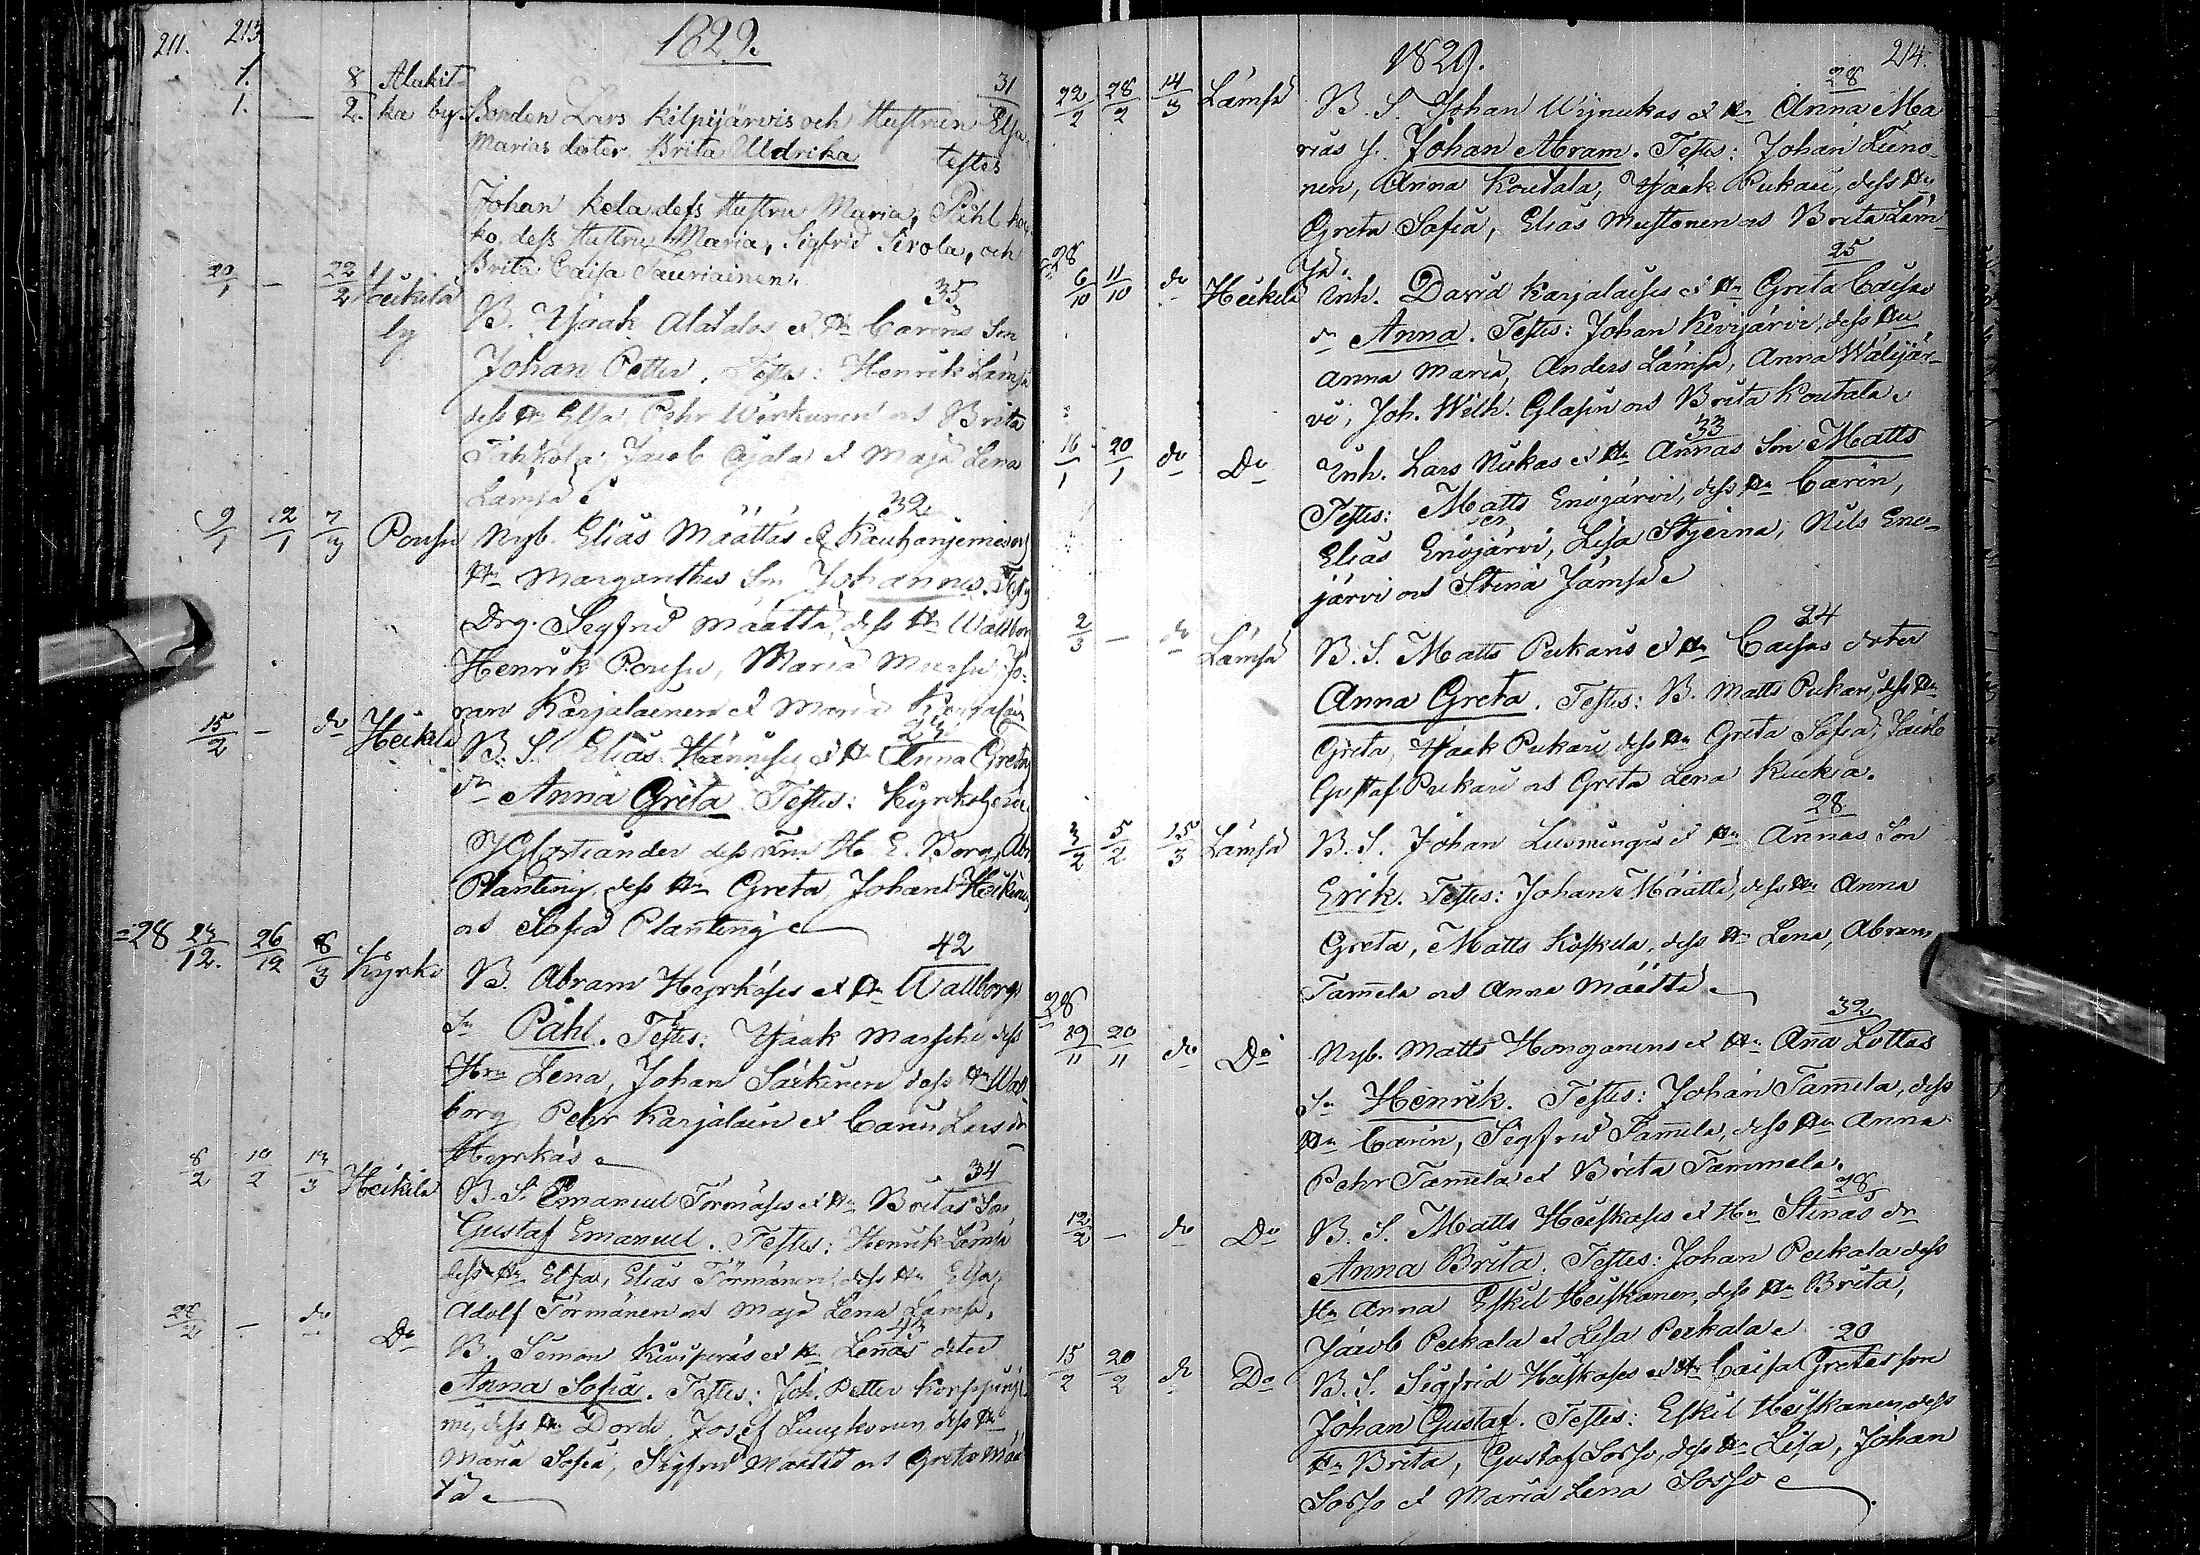 211. 213
1829.
1. 8 Alakit-
1. 2. ka by. Bonden Lars Kilpijärvis och Hustrun Elsa 31
Marias doter Brita Uldrika testes
Johan Kela dess Hustru Maria, Påhl
ko, dess Hustru Maria, Sigfrid Sirola, och
Brita Caisa Sauriainen.
20/1 — 22/2 Heikilä by 35
B. Isaak Alatalos et Hu Carins Son
Johan Petter. Testes: Henrik Lämsä
dess Hu Elsa, Pehr Wirkunen och Brita
Tähkola, Jacob Ojala et Maja Lena
Lämsä
9/1 12/1 7/3 Poussu Nyb. Elias Määttäs 32
Hu Margarethes Son Johannes. Test:
Drg. Segfrid Määttä, dess Hu Wallbor
Henrik Poussu, Maria Mursu, Jo-
nan Karjalainen et Maria
15/2 — do Heikilä B. S. Elias Hännises et Hu Anna Gretas 24
dr Anna Greta Testes: Kyrkoherde
dess Fru H. E. Borg, Abr
Planting, dess Hu Greta Johan Heikinen
och Sofia Planting
=28 23/12. 26/12 8/3 Kyrko B. Abram Hyrkäses et Hu Wallborgs 42
Sn Påhl. Testes: Isaak dess
Hru Lena, Johan Särkinen dess Hu Wall-
borg, Pehr Karjalain et Carin Lars dr
Hyrkäs
8/2 10/2 13/3 Heikilä B. S. Emanuel Törmäses et Hu Britas Son 34
Gustaf Emanuel. Testes: Henrik Lämsä
dess Hu Elsa, Elias Törmänen, dess Hu Elsa,
Adolf Törmänen och Maja Lena Lämsä,
22/2 — do Do B. Simon Kiviperäs et Hu Lenas doter 43
Anna Sofia. Testes: Joh. Petter
mi, dess Hu Dorde, Josef dess Hu
Maria Sofia, Sigfrid Määttä och Greta Mää
tä
1829. 214.
22/2 28/2 14/3 Lämsä B. S. Johan et Hu Anna Ma 28
rias S. Johan Abram. Testes: Johan Leino-
nen, Anna Koutala, Isaak Pukari, dess Hu
Greta Sofia, Elias Mustonen och Brita Läm-
sä.
28 6/10 11/10 do Heikilä Inh. David Karjalaises et Hu Greta Caisas 25
dr Anna. Testes: Johan Kivijärvi, dess Hu
Anna Maria, Anders Lämsä, Anna Wälijär-
vi, Joh. Wilh. Glasin och Brita Koutala
16/1 20/1 do Do Inh. Lars Niskas et Hu Annas Son Matts 33
Testes: Matts Enojärvi, dess Hu Carin,
Elias Enojärvi, Lisa Stjerna, Nils Eno-
järvi och Stina Jämsä
2/3 — do Lämsä B. S. Matts Pukaris et Hu Caisas doter 24
Anna Greta. Testes: B. Matts Pukari, dess Hu
Greta, Isaak Pukari dess Hu Greta Sofia, Jacob
Gustaf Pukari och Greta Lena Kuikia.
3/2 5/2 15/3 Lämsä B. S. Johan et Hu Annas Son 28
Erik. Testes: Johan Määttä, dess Hu Anna
Greta, Matts Koskela, dess Hu Lena, Abram
Tamela och Anna Määttä
28 19/11 20/11 do Do Nyb. Matts Honganens et Hu Anna Lottas 32
Sn Henrik. Testes: Johan Tamela, dess
Hu Carin, Segfrid Tamela, dess Hu Anna
Pehr Tamela et Brita Tammela.
12/2 — do Do B. S. Matts Heiskases et Hu Stinas dr 28
Anna Brita. Testes: Johan Peikala dess
Hu Anna Eskil Heiskanen, dess Hu Brita,
Jacob Peikala et Lisa Peikala
15/2 20/2 do Do B. S. Sigfrid Heiskases et Hu Caisa Gretas son 20
Johan Gustaf. Testes: Eskil Heiskanen, dess
Hu Brita, Gustaf Sorso, dess Hu Lisa, Johan
Sorso et Maria Lena Sorso